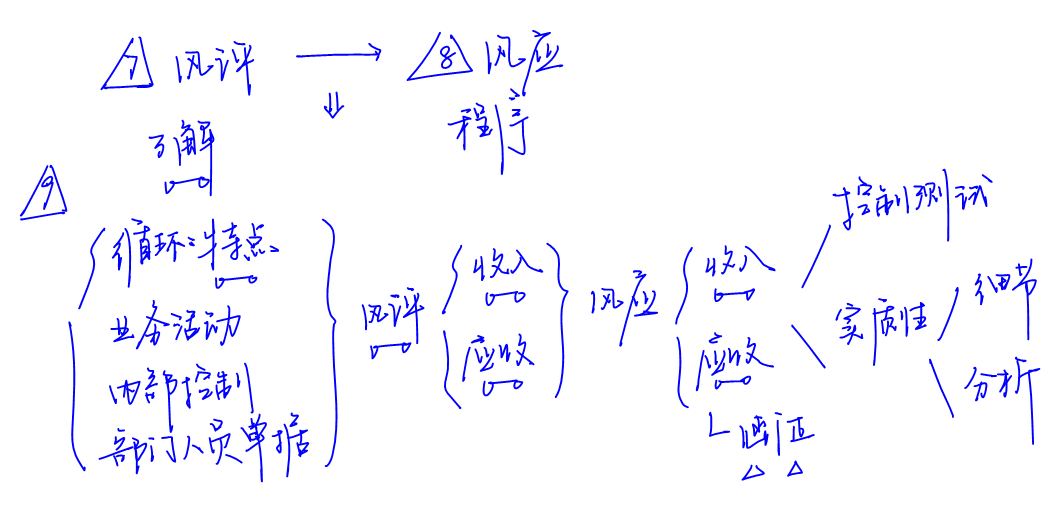 7 风评 → 8 风应
⇓
了解 程序
9
循环:特点
业务活动
内部控制
部门人员单据
风评
收入
应收
风应
收入
应收
函证
控制测试
实质性
细节
分析